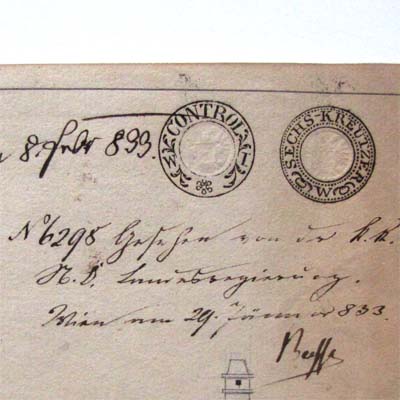 8. Febr 833.
CONTROL
SECHS-KREUTZER W
No 6298 Gesehen von der k.k.
N. Ö. Landesregierung.
Wien am 29. Jänner 833.